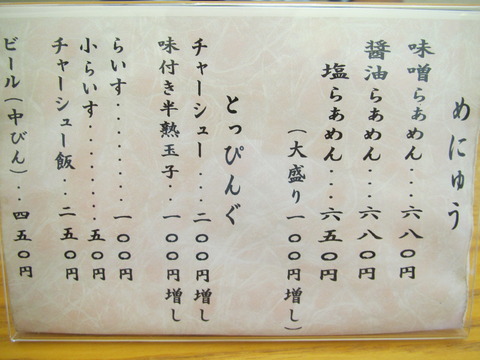 めにゅう
味噌らぁめん...六八〇円
醤油らぁめん...六八〇円
塩らぁめん...六五〇円
(大盛り 一〇〇円増し)
とっぴんぐ
チャーシュー...二〇〇円増し
味付き半熟玉子...一〇〇円増し
らいす..........一〇〇円
小らいす........五〇円
チャーシュー飯..二五〇円
ビール(中びん)..四五〇円